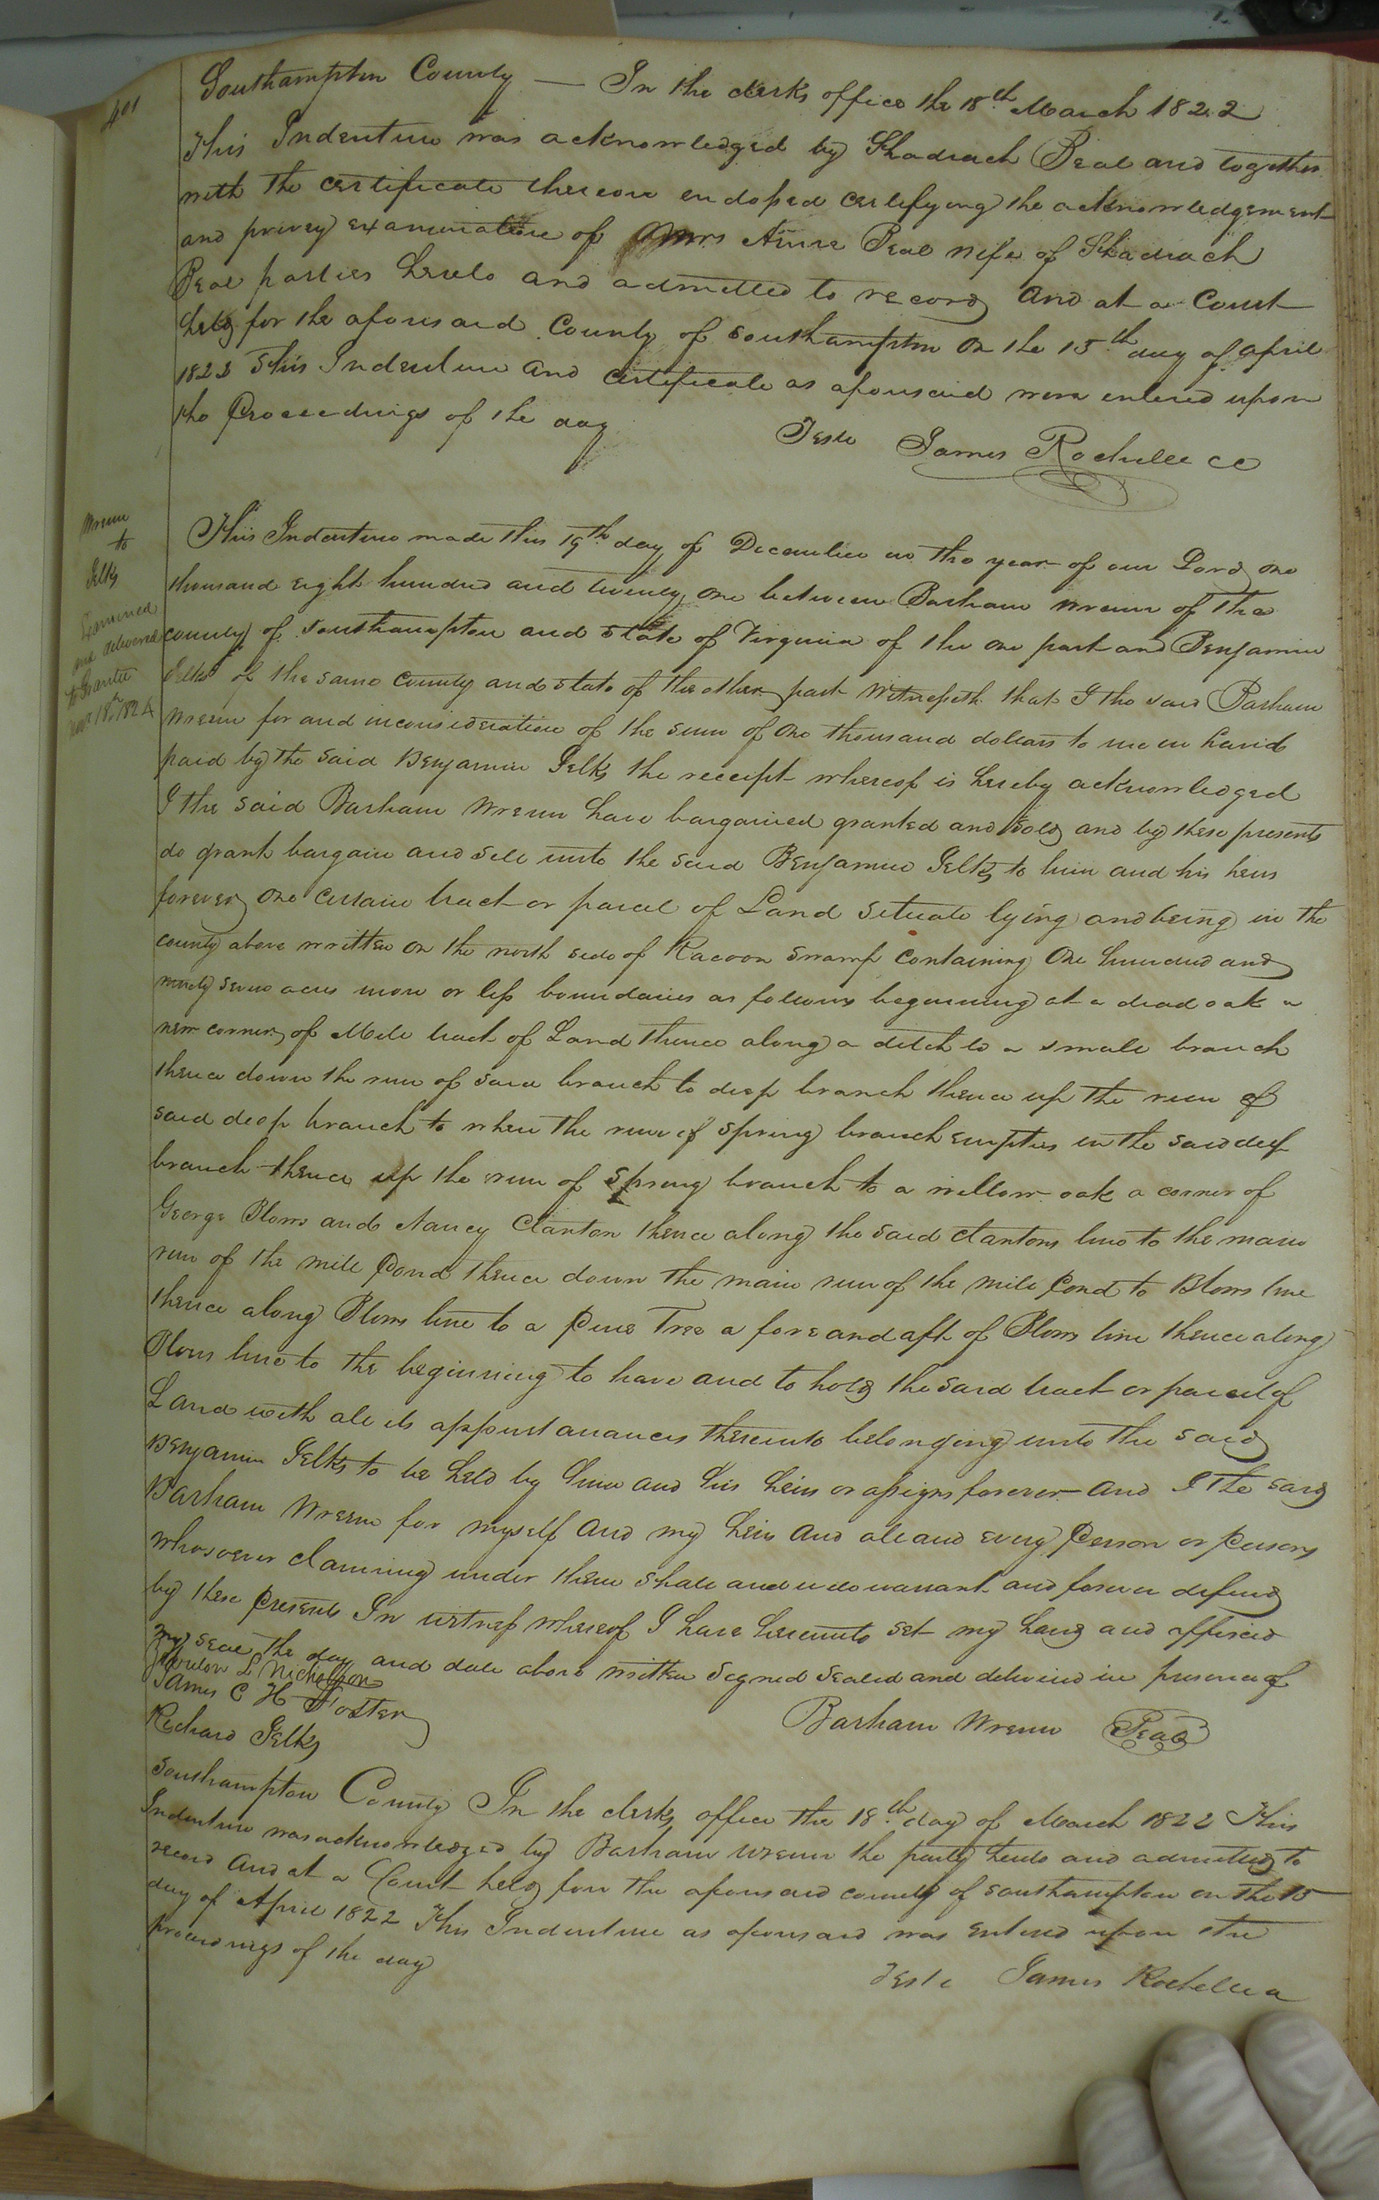 401
Southampton County — In the clerks office the 18th March 1822
This Indenture was acknowledged by Shadrach Beal and together
with the certificate thereon endorsed certifying the acknowledgement
and privey examination of Mrs Beal wife of Shadrach
Beal parties hereto and admitted to record And at a Court
held for the aforesaid County of Southampton on the 15th day of April
1822 This Indenture and certificate as aforesaid were entered upon
the Proceedings of the day
Teste James Rochelle CC
Wrenn
to
Jelks
Examined
and delivered
to Grantee
18th 1824
This Indenture made this 19th day of December in the year of our Lord one
thousand eight hundred and twenty one between Barham Wrenn of the
county of Southampton and State of Virginia of the one part and Benjamin
Jelks of the same County and state of the other part Witnesseth that I the said Barham
Wrenn for and in consideration of the sum of one thousand dollars to me in hand
paid by the said Benjamin Jelks the receipt whereof is hereby acknowledged
I the said Barham Wrenn have bargained granted and sold and by these presents
do grant bargain and sell unto the said Benjamin Jelks to him and his heirs
forever one certain tract or parcel of Land situate lying and being in the
county above written on the north side of Racoon Swamp containing one hundred and
ninety seven acres more or less boundaries as follows beginning at a dead oak a
new corner of Mill tract of Land thence along a ditch to a small branch
thence down the run of said branch to deep branch thence up the run of
said deep branch to when the run of spring branch empties in the said deep
branch thence up the run of spring branch to a willow oak a corner of
George Blows and Nancy Clanton thence along the said Clantons line to the main
run of the mill Pond thence down the main run of the mill Pond to Blows line
thence along Blows line to a Pine Tree a fore and aft of Blows line thence along
Blows line to the beginning to have and to hold the said tract or parcel of
Land with all its appurtanances thereunto belonging unto the said
Benjamin Jelks to be held by him and his heirs or assigns forever and I the said
Barham Wrenn for myself and my heirs and all and every Person or Persons
whosoever claiming under them shall and will warrant and forever defend
by these Presents In witness whereof I have hereunto set my hand and affixed
my seal the day and date above written Signed Sealed and delivered in presence of
L Nicholson
James C H Foster
Richard Jelks
Barham Wrenn Seal
Southampton County In the clerks office the 18th day of March 1822 This
Indenture was acknowledged by Barham Wrenn the party hereto and admitted to
record And at a Court held for the aforesaid county of Southampton on the 15
day of April 1822 This Indenture as aforesaid was entered upon the
proceedings of the day
Teste James Rochelle